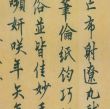 亡布射遼丸
筆倫紙鈞巧
俗並皆佳妙
嚬妍咲年矢